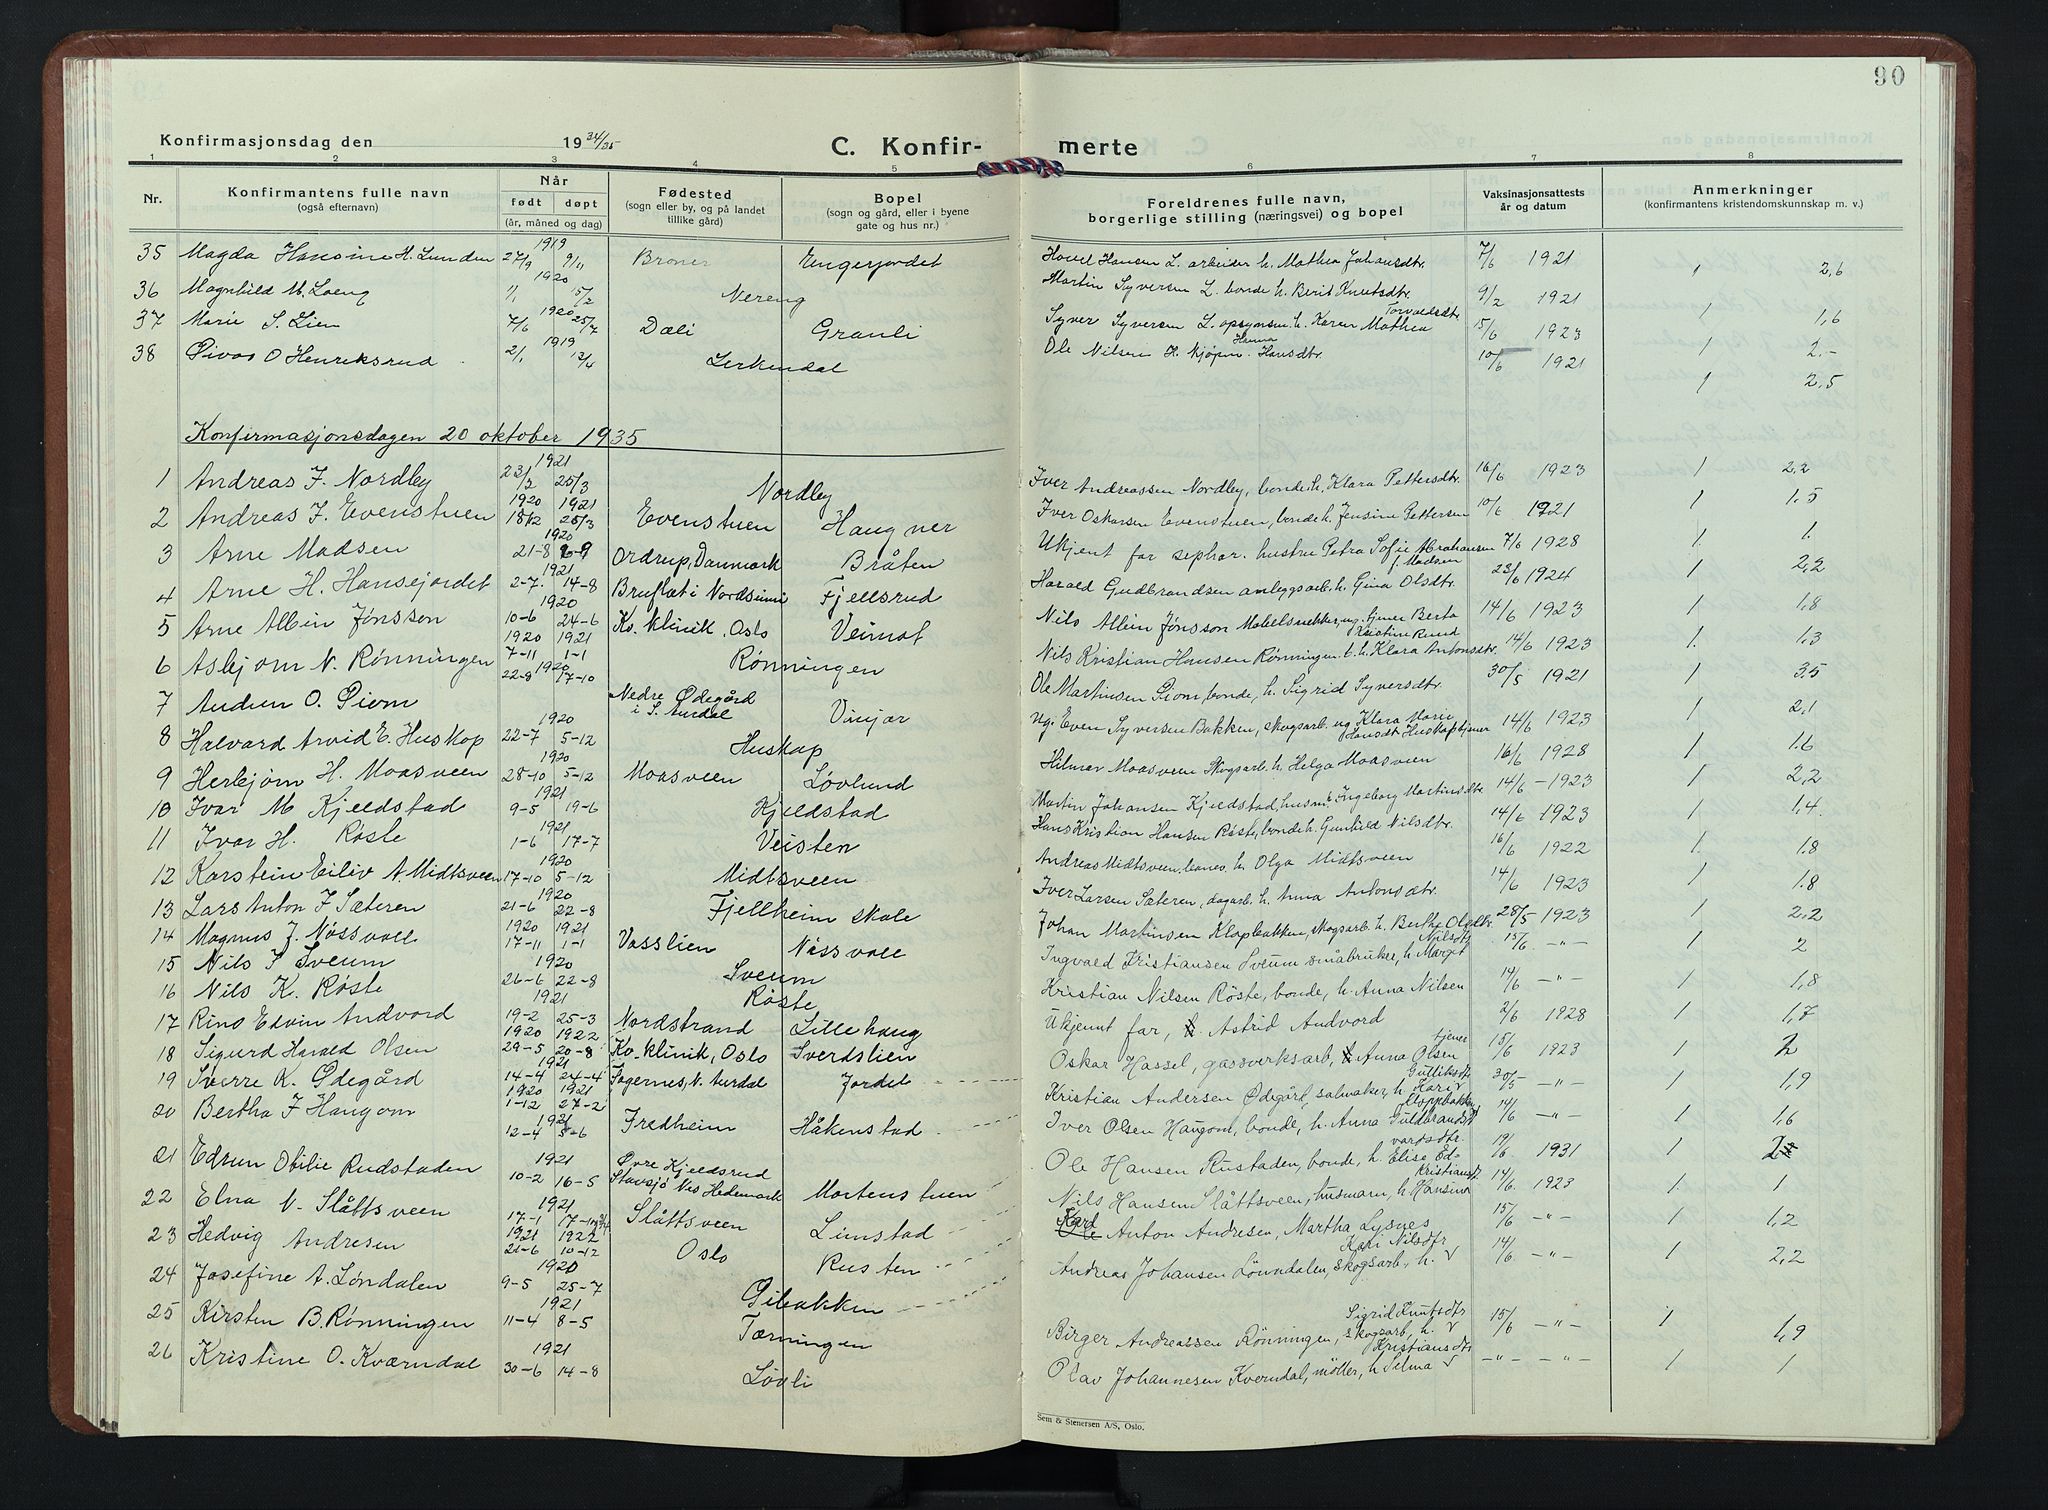 90
Konfirmasjonsdag den 19 34/35 C. Konfir- merte
1 2 3 4 5 6 7 8
Nr. Konfirmantens fulle navn (også efternavn) Når født døpt (år, måned og dag) Fødested (sogn eller by, og på landet tillike gård) Bopel (sogn og gård, eller i byene gate og hus nr.) Foreldrenes fulle navn, borgerlige stilling (næringsvei) og bopel Vaksinasjonsattests år og datum Anmerkninger (konfirmantens kristendomskunnskap m. v.)
35 Magda Hansine H. Lunden 1919 27/9 9/11 Broner Engejordet Hovel Hansen L. arbeider h. Mathea Johansdtr. 7/6 1921 1 2,6
36 Magnhild M. Loeng 1920 1/1 15/2 Nereng Martin Syversen L. bonde h. Berit Knutsdtr. 9/2 1921 1 1,6
37 Marie S. Lien 1920 7/6 25/7 Dæli Granli Syver Syversen L. opsynsm. h. Karen Mathea Torvaldsdtr. 15/6 1923 1 2,-
38 O Henriksrud 1919 2/1 12/4 Lerkendal Ole Nilsen H. kjøpm. Hanna Hansdtr. 10/6 1921 1 2,5
Konfirmasjonsdagen 20 oktober 1935
1 Andreas I. Nordby 1921 23/2 25/3 Nordby Iver Andreassen Nordby, bonde h. Klara Pettersdtr. 16/6 1923 1 2,2
2 Andreas I. Evenstuen 1920 1921 18/12 28/3 Evenstuen Haugner Iver Oskarsen Evenstuen, bonde h. Jensine Pettersen 10/6 1921 1 1,5
3 Arne Madsen 1920 21-8 6-9 Ordrup, Danmark Bråten Ukjent far separ. hustru Petra Sofie Abrahamsen f. Madsen 7/6 1928 1 1.
4 Arne H. Hansejordet 1921 2-7. 14-8 Bruflat i Nordsinni Fjellsrud Harald Gudbrandsen anleggsarb. h. Gina Olsdtr. 23/6 1924 1 2,2
5 Arne Albin Jønsson 1920 10-6 24-6 Kv. klinik, Oslo Veimot Nils Albin Jønsson Møbelsnekker, ug. tjener Berta Kristine Ruud 14/6 1923 1 1,8
6 Asbjørn N. Rønningen 1920 1921 7-11 1-1 Rønningen Nils Kristian Hansen Rønningen b. h. Klara Antonsdtr. 14/6 1923 1. 1.3
7 Audun O. Giom 1920 22-8 17-10 Nedre Ødegård i S. Aurdal Vinjar Ole Martinsen Giom, bonde, h. Sigrid Syversdtr. 30/5 1921 1 3.5
8 Halvard Arvid E. Huskap 1920 22-7 5-12 Huskap Ug. Even Syversen Bakken, skogsarb. ug Klara Marie Hansdt Huskap tjener 14/6 1923 1 2,1
9 Herbjørn H. Moasveen 1920 28-10 5-12 Moasveen Løvlund Hilmar Moasveen Skogsarb. h. Helga Moasveen 16/6 1928 1 1.6
10 Ivar M Kjeldstad 1921 9-5 19-6 Kjeldstad Martin Johansen Kjeldstad, husm. Ingeborg Martinsdtr 14/6 - 1923 1 2,2
11 Ivar H. Røste 1921 1-6 17-7 Veisten Hans Kristian Hansen Røste, bonde h. Gunhild Nilsdtr. 14/6 1923 1 1.4.
12 Karstein Eiliv A. Midtsveen 1920 17-10 5-12 Midtsveen Andreas Midtsveen, h. Olga Midtsveen 16/6 1922 1. 1.8
13 Lars Anton I Sæteren 1920 21-6 22-8 Fjellheim skole Iver Larsen Sæteren, dagarb. h. Anna Antonsdtr. 14/6 1923 1 1.8
14 Magnus J. Nøssvoll 1920 1921 17-11 1-1 Vosslien Nøssvoll Johan Martinsen Klopbakken, skogsarb. h. Berthe Olsdtr. 28/5 1923 1 2,2
15 Nils I Sveum 1920 26-6 22-8 Sveum Ingvald Kristiansen Sveum småbruker, h. Margit Nilsdtr 15/6. -"- 1 2
16 Nils K. Røste 1921 Røste Kristian Nilsen Røste, bonde, h. Anna Nilsen 14/6 -"- 1 1,8
17 Rino Edvin Andvord 19-2 25-3 Nordstrand Lillehaug Ukjennt far, Astrid Andvord 2/6 1928 1 1,7
18 Sigurd Harald Olsen 1920 1922 29-5 20-8 Kv. klinik, Oslo Sverdslien Oskar Hassel, gassverksarb, Anna Olsen tjener 15/6 1923 1 2
19 Sverre K. Ødegård 1921 14-4 24-4 Fagernes, N. Aurdal Jordet Kristian Andersen Ødegård, salmaker, h. Kari Gulliksdtr 30/5 -"- 1 1,9
20 Bertha I Haugom 1920 1921 1-12 27-2 Fredheim Håkenstad Iver Olsen Haugom, bonde, h. Anna Guldbrandsdt Kloppbakken 14/6 -"- 1 1,6
21 Edrun Obilie Rudstaden 1921 12-4 5-6 Øvre Kjeldsrud Ole Hansen Rustaden, bonde, h. Elise Edvardsdtr. 19/6. 1931 1 2
22 Elna N. Slåttsveen 1921 10-2 16-5 Stavsjø Nes Hedemark Mortenstuen Nils Hansen Slåttsveen, husmann, h Hansina Kristiansdt. 14/6. 1923 1 1
23 Hedvig Andresen 1921 17-1 17-10 Slåttsveen Linstad Anton Andresen, Martha Lysnes 15/6 -"- 1 1,2
24 Josefine A. Løndalen 1921 1922 21-6 10-12 Oslo Rusten Andreas Johansen Lønndalen, skogsarb., h. Kari Nilsdtr 14/6 -"- 1 2,2
25 Kirsten B. Rønningen 1920 9-5 25-7 Gibakken Birger Andreassen Rønningen, skogsarb, h. Sigrid Knutsdtr 15/6 -"- 1 1,9
26 Kristine O. Kværndal 1921 11-4 8-5 Tærningen Olav Johannesen Kverndal, møller, h Selma Kristiansdtr -"- -"- 1 1
1921 30-6 14-8 Løvli
Sem & Stenersen A/S, Oslo.